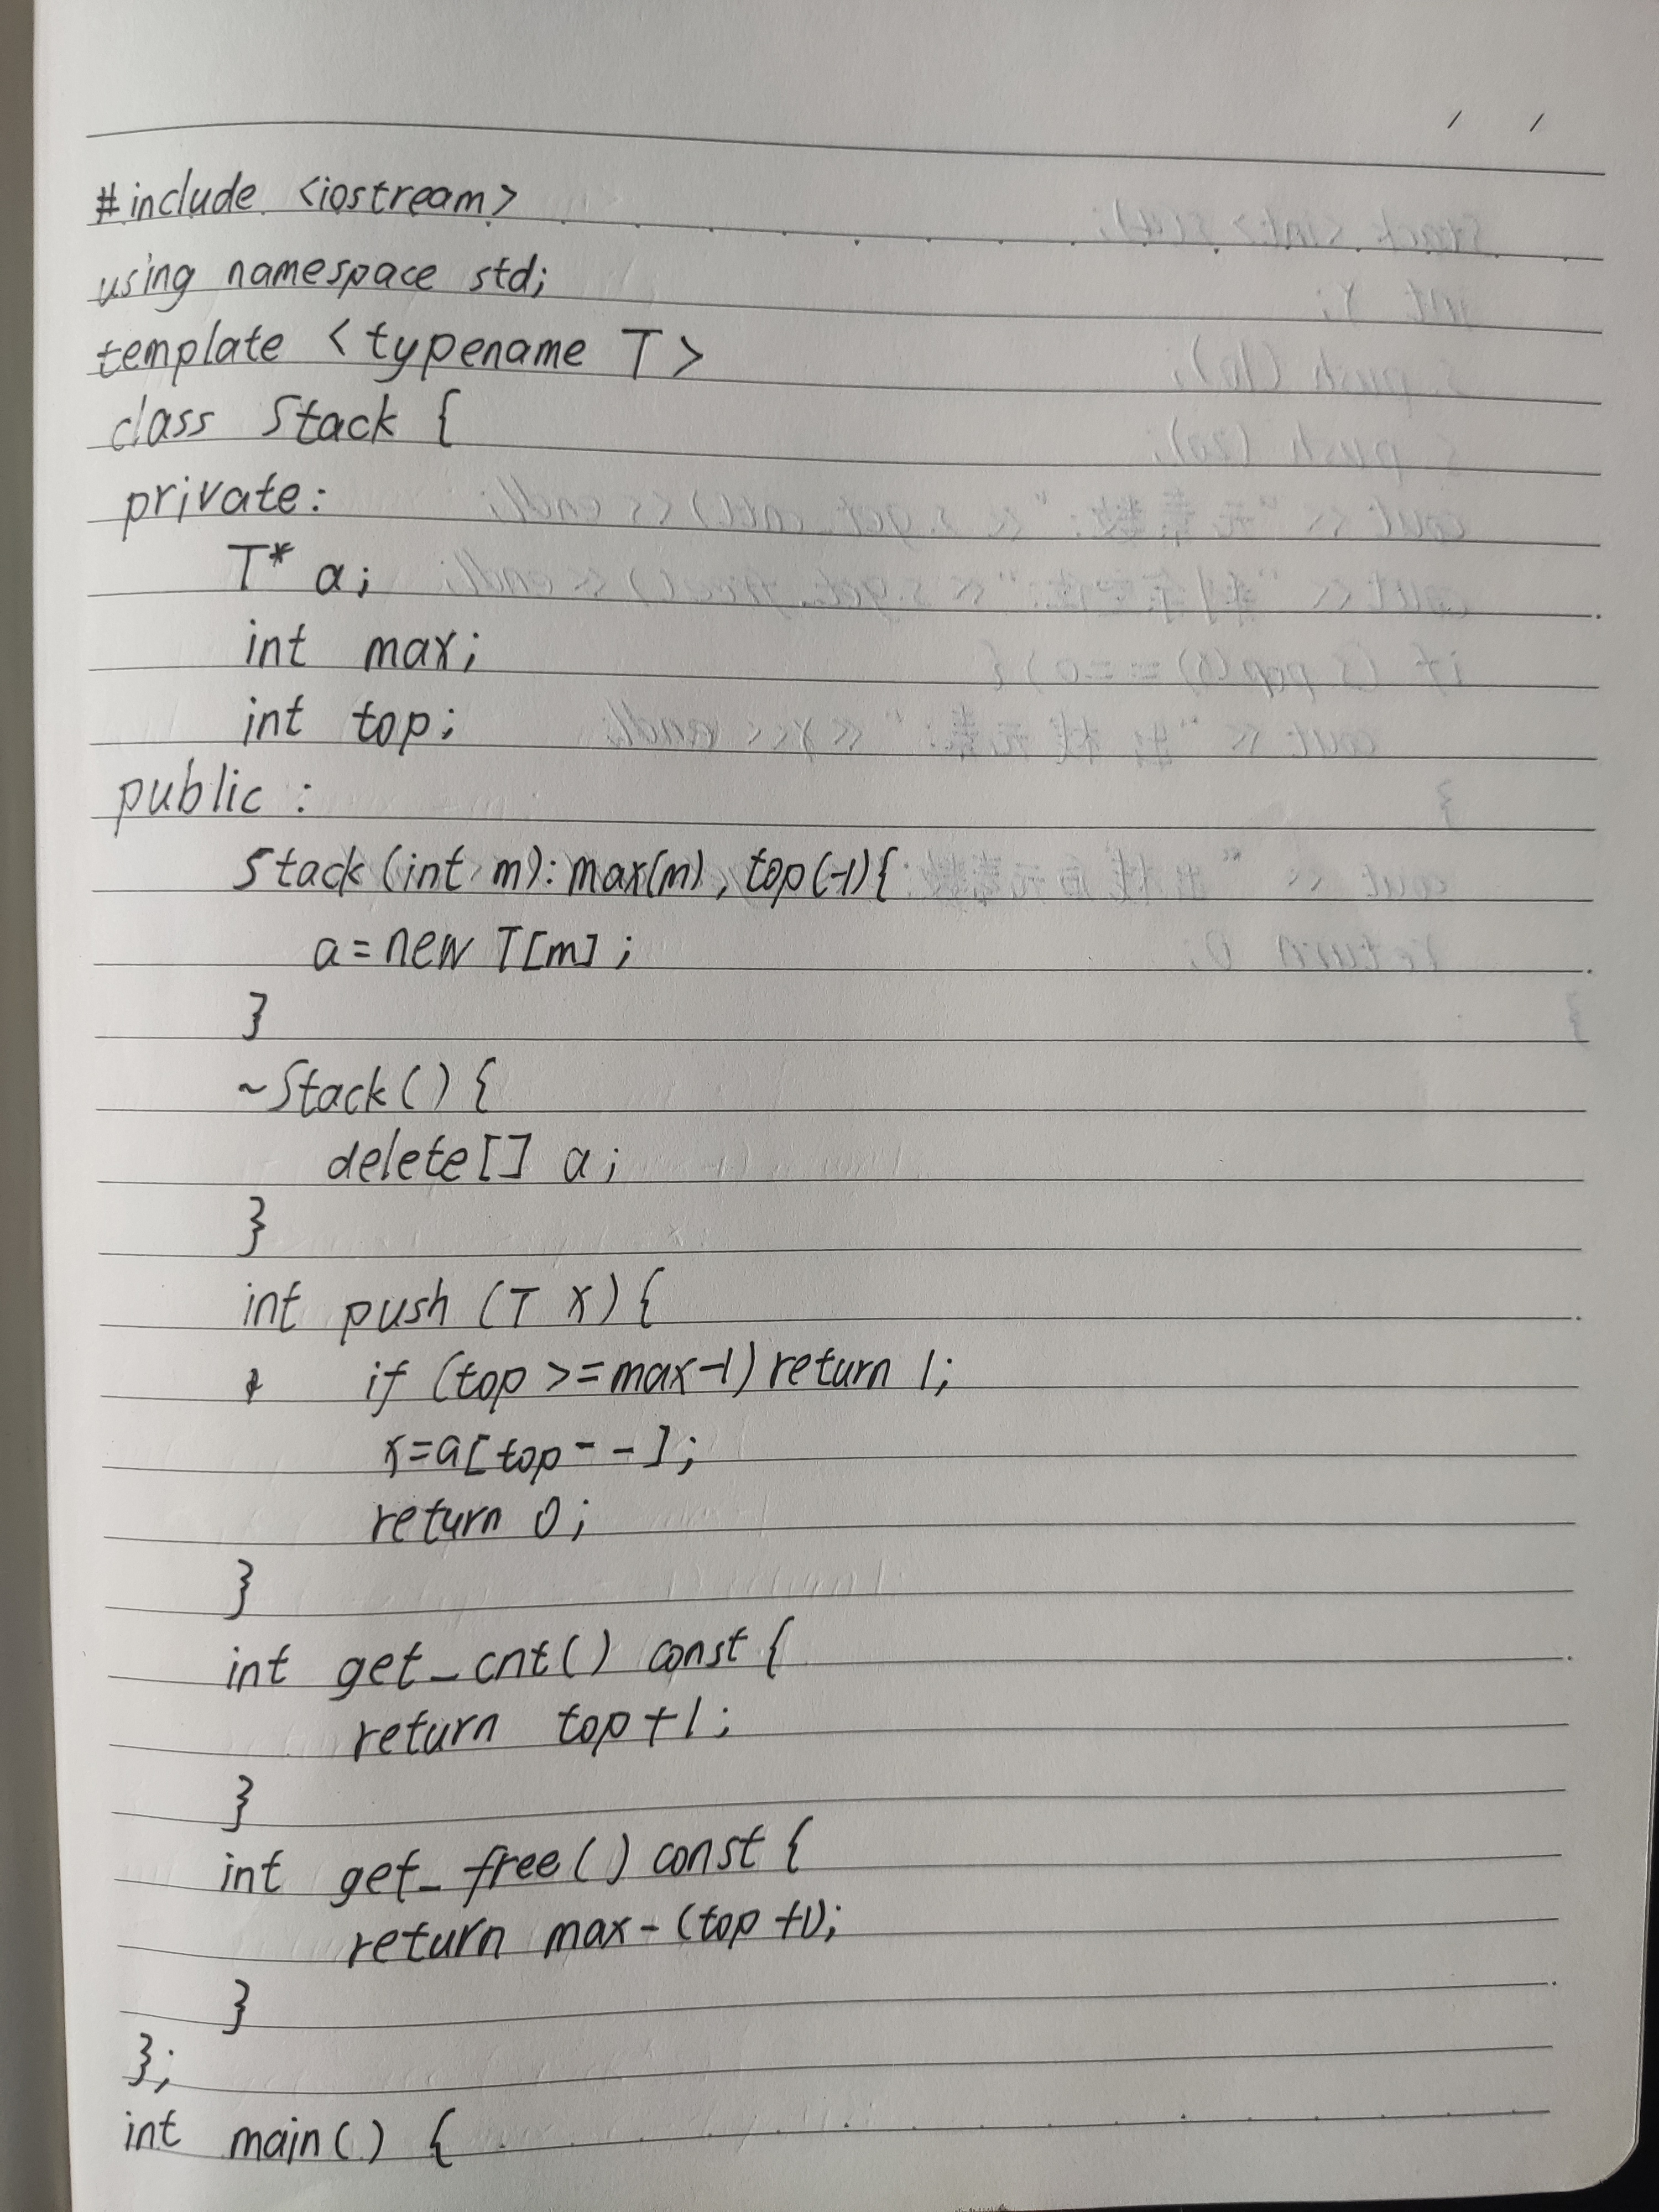 #include <iostream>
using namespace std;
template <typename T>
class Stack {
private:
T* a;
int max;
int top;
public :
Stack(int m): max(m), top(-1){
a=new T[m];
}
~Stack() {
delete[] a;
}
int push (T x){
if (top >=max-1) return 1;
x=a[top--];
return 0;
}
int get_cnt() const {
return top+1;
}
int get_free() const {
return max-(top+1);
}
};
int main() {